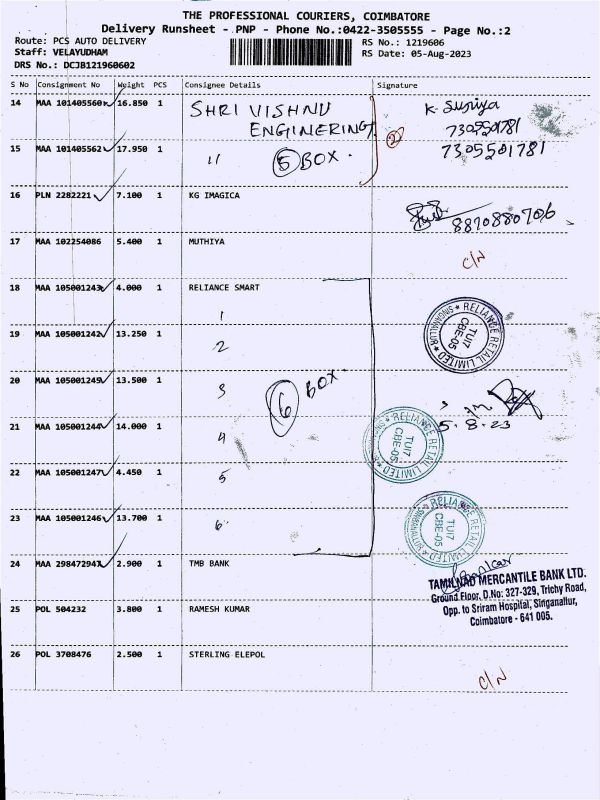 THE PROFESSIONAL COURIERS, COIMBATORE
Delivery Runsheet - PNP - Phone No.:0422-3505555 - Page No.:2
Route: PCS AUTO DELIVERY
RS No.: 1219606
Staff: VELAYUDHAM
RS Date: 05-Aug-2023
DRS No.: DCJB121960602
S No Consignment No Weight PCS Consignee Details Signature
14 MAA 101405560 16.850 1 SHRI VISHNU K. Suriya
ENGINERING 7305501781
15 MAA 101405562 17.950 1 11 5 BOX. 2 7305501781
16 PLN 2282221 7.100 1 KG IMAGICA
8870880706
17 MAA 102254086 5.400 1 MUTHIYA
C/N
18 MAA 105001243 4.000 1 RELIANCE SMART
1
RELIANCE RETAIL LIMITED SINGANALLUR
TUI7
CBE-05
19 MAA 105001242 13.250 1
2
20 MAA 105001245 13.500 1
3 6 BOX.
5.8.23
21 MAA 105001244 14.000 1
4
RELIANCE RETAIL LIMITED
TUI7
CBE-05
22 MAA 105001247 4.450 1
5
23 MAA 105001246 13.700 1
6
RELIANCE RETAIL LIMITED SINGANALLUR
TUI7
CBE-05
24 MAA 298472947 2.900 1 TMB BANK
TAMILNAD MERCANTILE BANK LTD.
Ground Floor, D.No: 327-329, Trichy Road,
Opp. to Sriram Hospital, Singanallur,
Coimbatore - 641 005.
25 POL 504232 3.800 1 RAMESH KUMAR
26 POL 3708476 2.500 1 STERLING ELEPOL
C/N